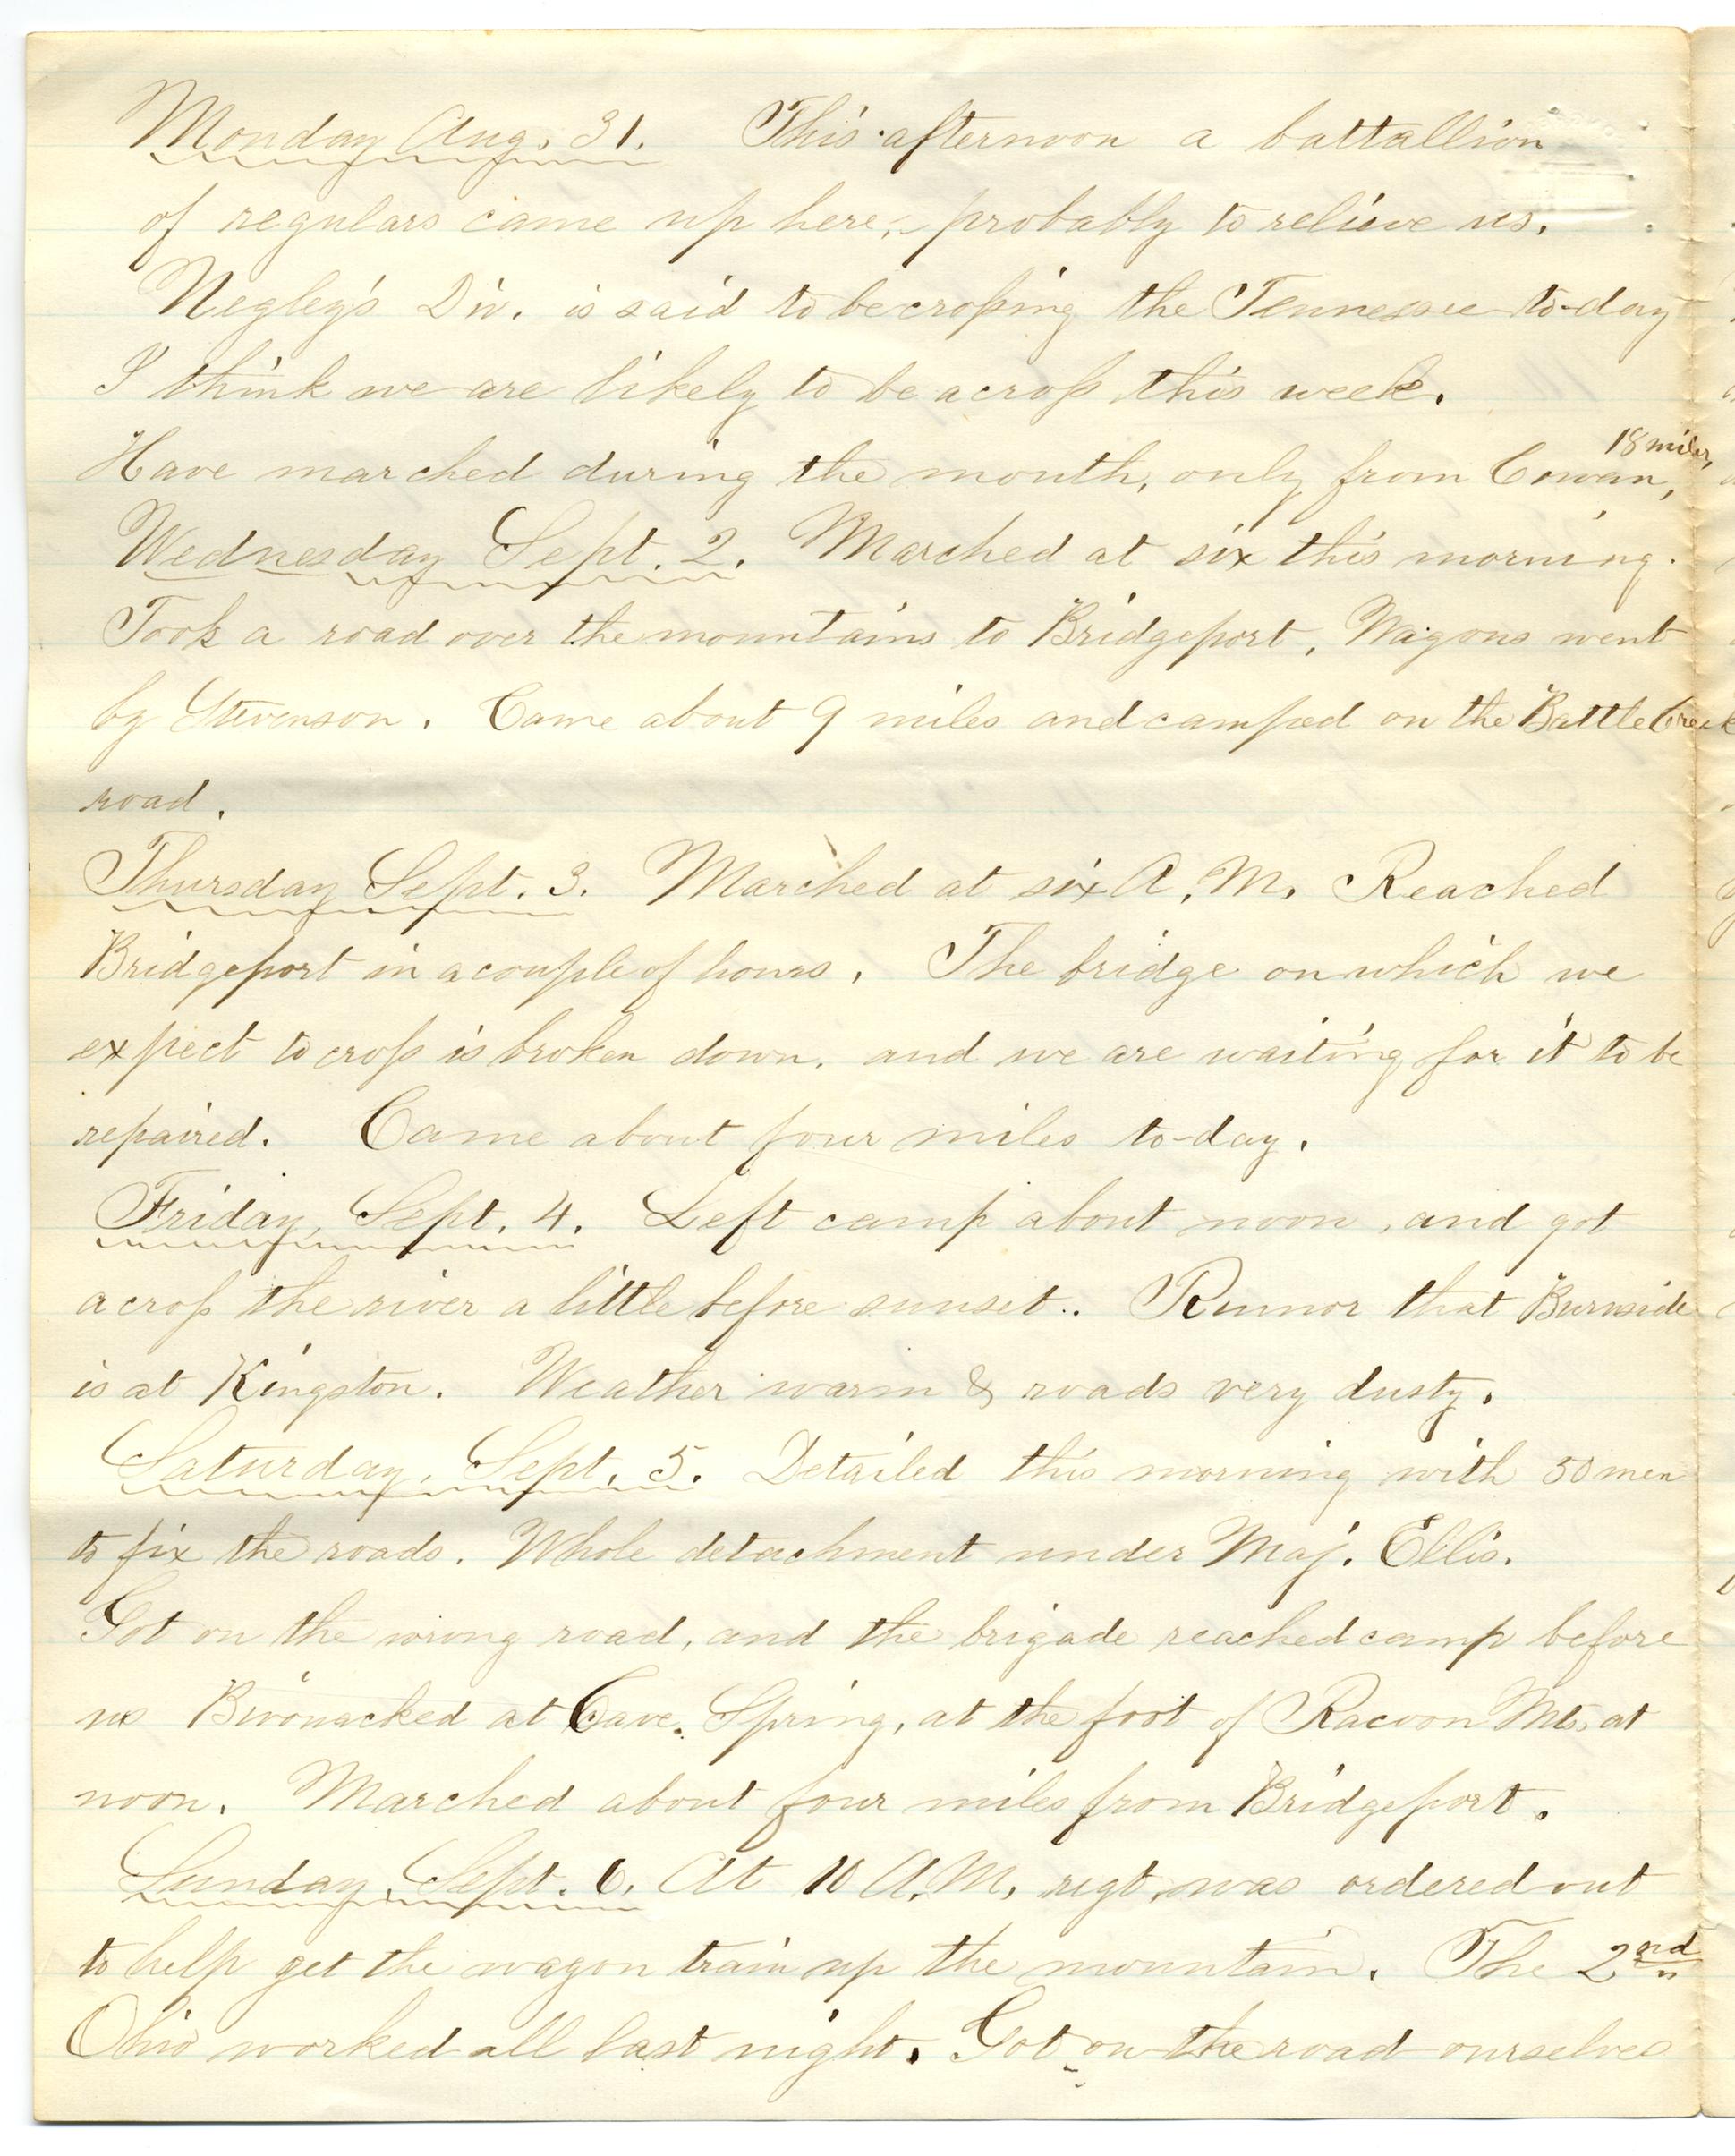 Monday Aug. 31. This afternoon a battallion
of regulars came up here, probably to relieve us.
Negley's Div. is said to be croſsing the Tennessee to-day
I think we are likely to be acroſs this week.
Have marched during the month, only from Cowan, 18 miles,
Wednesday Sept. 2. Marched at six this morning.
Took a road over the mountains to Bridgeport, Wagons went
by Stevenson. Came about 9 miles and camped on the Battle Creek
road.
Thursday Sept. 3. Marched at six A.M. Reached
Bridgeport in a couple of hours. The bridge on which we
expect to croſs is broken down, and we are waiting for it to be
repaired. Came about four miles to-day.
Friday, Sept. 4. Left camp about noon, and got
acroſs the river a little before sunset.. Rumor that Burnside
is at Kingston. Weather warm & roads very dusty.
Saturday, Sept. 5. Detailed this morning with 50 men
to fix the roads. Whole detachment under Maj. Ellis.
Got on the wrong road, and the brigade reached camp before
us Bivouacked at Cave Spring, at the foot of Racoon Mts, at
noon. Marched about four miles from Bridgeport.
Sunday, Sept. 6. At 10 A.M. regt. was ordered out
to help get the wagon train up the mountain. The 2nd
Ohio worked all last night. Got on the road ourselves